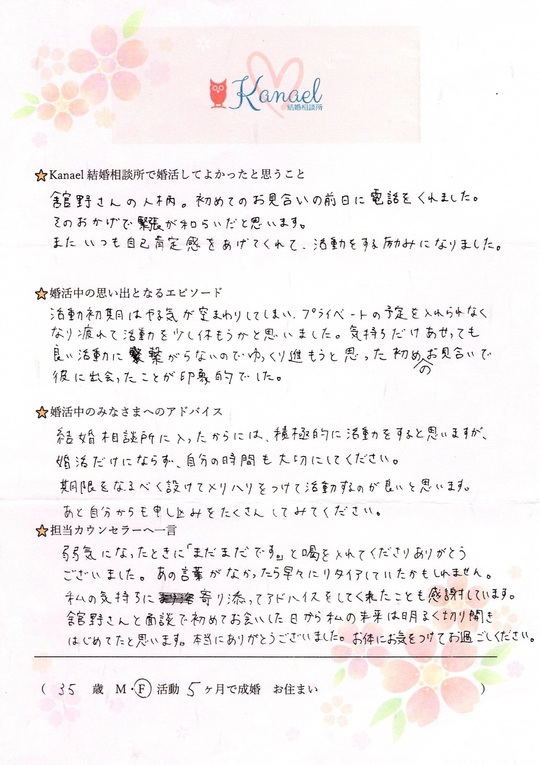 Kanael
結婚相談所
Kanael 結婚相談所で婚活してよかったと思うこと
舘野さんの人柄。初めてのお見合いの前日に電話をくれました。
そのおかげで緊張が和らいだと思います。
また いつも自己肯定感をあげてくれて、活動をする励みになりました。
婚活中の思い出となるエピソード
活動初期はやる気が空まわりしてしまい、プライベートの予定を入れられなく
なり疲れて活動を少し休もうかと思いました。気持ちだけあせっても
良い活動に繋がらないのでゆっくり進もうと思った初めのお見合いで
彼に出会ったことが印象的でした。
婚活中のみなさまへのアドバイス
結婚相談所に入ったからには、積極的に活動をすると思いますが、
婚活だけにならず、自分の時間も大切にしてください。
期限をなるべく設けてメリハリをつけて活動するのが良いと思います。
あと自分からも申し込みをたくさんしてみてください。
担当カウンセラーへ一言
弱気になったときに「まだまだです」と喝を入れてくださりありがとう
ございました。あの言葉がなかったら早々にリタイアしていたかもしれません。
私の気持ちに寄り添ってアドバイスをしてくれたことも感謝しています。
舘野さんと面談で初めてお会いした日から私の未来は明るく切り開き
はじめてたと思います。本当にありがとうございました。お体にお気をつけてお過ごしください。
( 35 歳 M・F 活動 5 ヶ月で成婚 お住まい )